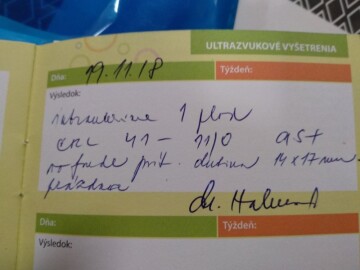 ULTRAZVUKOVÉ VYŠETRENIA
Dňa: 19.11.18 Týždeň:
Výsledok:
intrauterine 1 plod
CRL 41 - 11/0 AS+
vo funde prít. dutina 14x17mm
prázdna
Dňa: Týždeň:
Výsledok: